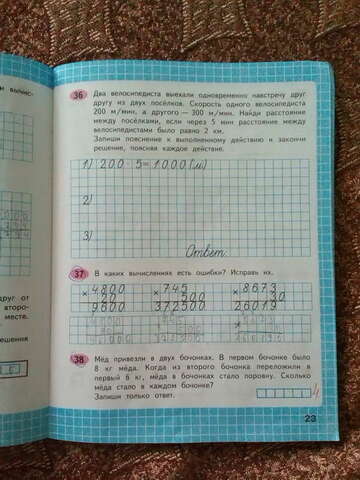 м вычис-
36 Два велосипедиста выехали одновременно навстречу друг
другу из двух посёлков. Скорость одного велосипедиста
200 м/мин, а другого — 300 м/мин. Найди расстояние
между посёлками, если через 5 мин расстояние между
велосипедистами было равно 2 км.
Запиши пояснение к выполненному действию и закончи
решение, поясняя каждое действие.
1) 200·5=1000(м)
2)
3)
Ответ
37 В каких вычислениях есть ошибки? Исправь их.
×4800 ×745 ×8673
20 500 30
9600 372500 26019
друг от
второ-
месте.
решения
38 Мёд привезли в двух бочонках. В первом бочонке было
8 кг мёда. Когда из второго бочонка переложили в
первый 6 кг, мёда в бочонках стало поровну. Сколько
мёда стало в каждом бочонке?
Запиши только ответ.
23